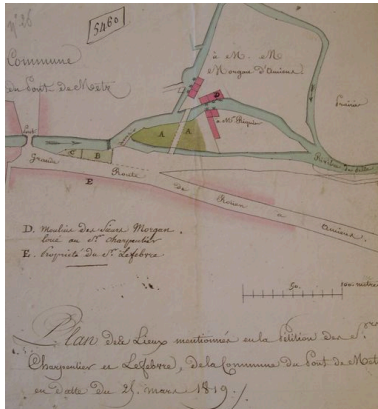 n° 26
5460
Commune
du Pont de Metz
à M. M.
Morgan d'Amiens
Prairie
D
à Mr.
A
A
B
Pont
Grande Route de Rouen à Amiens
E
D. Moulin des Sieurs Morgan
loué au Sr. Charpentier
E. Propriété du Sr. Lefebvre
50
100 metres
Plan des Lieux mentionnés en la Pétition des Srs.
Charpentier et Lefebvre, de la Commune du Pont de Metz
en date du 25. mars 1819 ./.